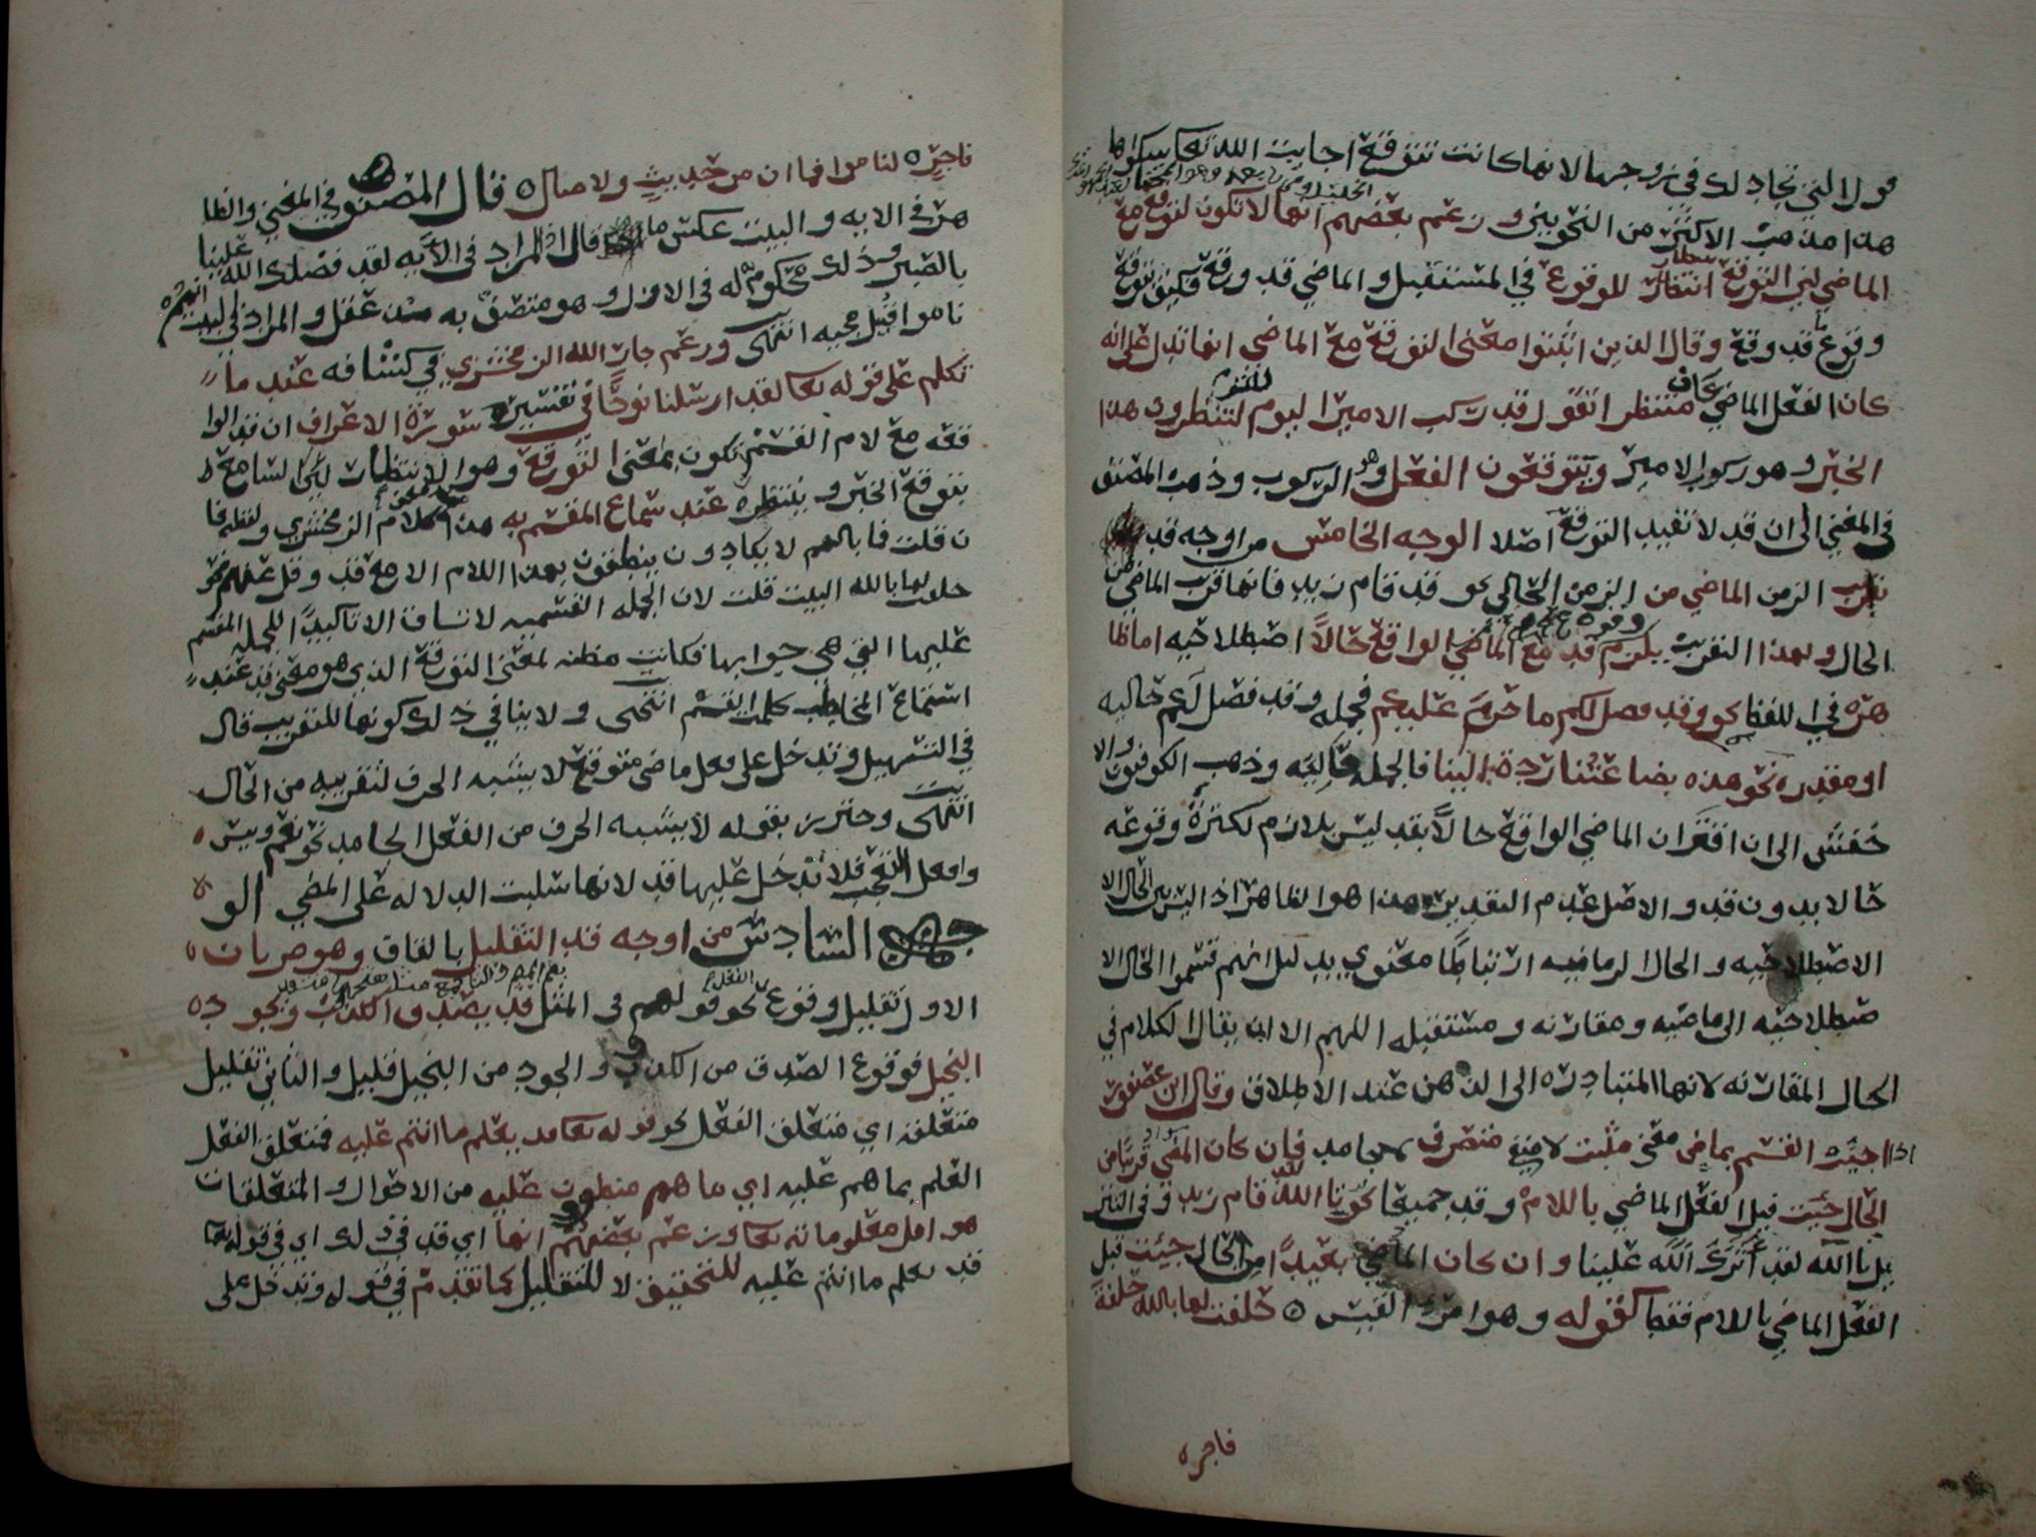 قول التي تجادلك في زوجها لانها كانت تتوقع اجابت الله تعالى لدعاها
هذا مذهب الاكثر من النحويين وزعم بعضهم انها لا تكون لتوقع مع
الماضي لان التوقع انتظار للوقوع في المستقبل والماضي قد وقع فكيف يتوقع
وقوع قد وقع وقال الذين اثبتوا معنى التوقع مع الماضي انها تدل على انه
كان الفعل الماضي منتظر اتقول قد ركب الامير اليوم لتنتظرون هذا
الخبر وهو ركوب الامير ويتوقعون الفعل وهو الركوب وذهب المصنف
في المغني الى ان قد لا تفيد التوقع اصلا الوجه الخامس من اوجه قد
تقريب الزمن الماضي من الزمن الحالي نحو قد قام زيد فانها قرب الماضي من
الحال ولهذا التقريب يلزم قد مع الماضي الواقع حالا اصطلاحيه اما ظا
هره في اللفظ نحو وقد فصل لكم ما حرم عليكم فجمله وقد فصل لكم حاليه
او مقدره نحو هذه بضاعتنا ردة الينا فالجمله حاليه وذهب الكوفيون والا
خفش الى ان اقتران الماضي الواقع حالا بقد ليس بلازم لكثرة وقوعه
حالا بدون قد والاصل عدم التقدير هذا هو الظاهر اذ ليس بين الحال الا
الاصطلاحيه والحال الزمانيه ارتباطا معنوي بدليل انهم قسموا الحال الا
صطلاحيه الى ماضيه ومقارنه ومستقبله اللهم الا ان يقال الكلام في
الحال المقارنه لانها المتبادره الى الذهن عند الاطلاق وقال ابن عصفور
اذا اجيب القسم بماض معنى مثبت لا منفي متصرف لا جامد فان كان الماضي قريبا من
الحال جيت قبل الفعل الماضي باللام وقد جميعا نحو تا الله لقد قام زيد وفي التنز
يل تا الله لقد آثرك الله علينا وان كان الماضي بعيدا من الحال جيت قبل
الفعل الماضي باللام فقط كقوله وهو امرؤ القيس ه حلفت لها بالله حلفة
فاجره
فاجره لناموا فما ان من حديث ولا صال ه قال المصنف في المغني والظا
هر في الايه والبيت عكس ما قال اذ المراد في الايه لقد فضلك الله علينا
بالصبر وذلك محكوم له في الازل وهو متصف به مذ عقل والمراد في البيت انهم
ناموا قبل مجيه انتهى وزعم جار الله الزمخشري في كشافه عند ما
تكلم على قوله تعالى لقد ارسلنا نوحا في تفسير سورة الاعراف ان قد الوا
قعه مع لام القسم تكون بمعنى التوقع وهو الانتظار لان السامع
يتوقع الخبر وينتظره عند سماع المقسم به هذا معنى كلام الزمخشري ولفظه فا
ن قلت فما بالهم لا يكادون ينطقون بهذا اللام الا مع قد وقل عنهم نحو
حلفت لها بالله البيت قلت لان الجمله القسميه لا تساق الا تاكيدا للجمله المقسم
عليها التي هي جوابها فكانت مظنه لمعنى التوقع الذي هو معنى قد عند
استماع المخاطب كلمت القسم انتهى ولا ينافي ذلك كونها للتقريب قال
في التسهيل وتدخل على فعل ماضي متوقع لا يشبه الحرف لتقريبه من الحال
انتهى وحترز بقوله لا يشبه الحرف من الفعل الجامد نحو نعم وبيس ه
وافعل التعجب فلا تدخل عليها قد لانها سلبت الدلاله على المضي الو
جه السادس من اوجه قد التقليل بالقاف وهو ضربان ه
الاول تقليل وقوع الفعل نحو قولهم في المثل قد يصدق الكذوب وقد يجود
البخيل فوقوع الصدق من الكذوب والجود من البخيل قليل والثاني تقليل
متعلقه اي متعلق الفعل نحو قوله تعالى قد يعلم ما انتم عليه فمتعلق الفعل
العلم بما هم عليه اي ما هم منطوون عليه من الاحوال والمتعلقات
هو اقل معلوماته تعالى وزعم بعضهم انها اي قد في ذلك اي في قوله تعالى
قد يعلم ما انتم عليه للتحقيق لا للتقليل كما تقدم في قوله وتدخل على